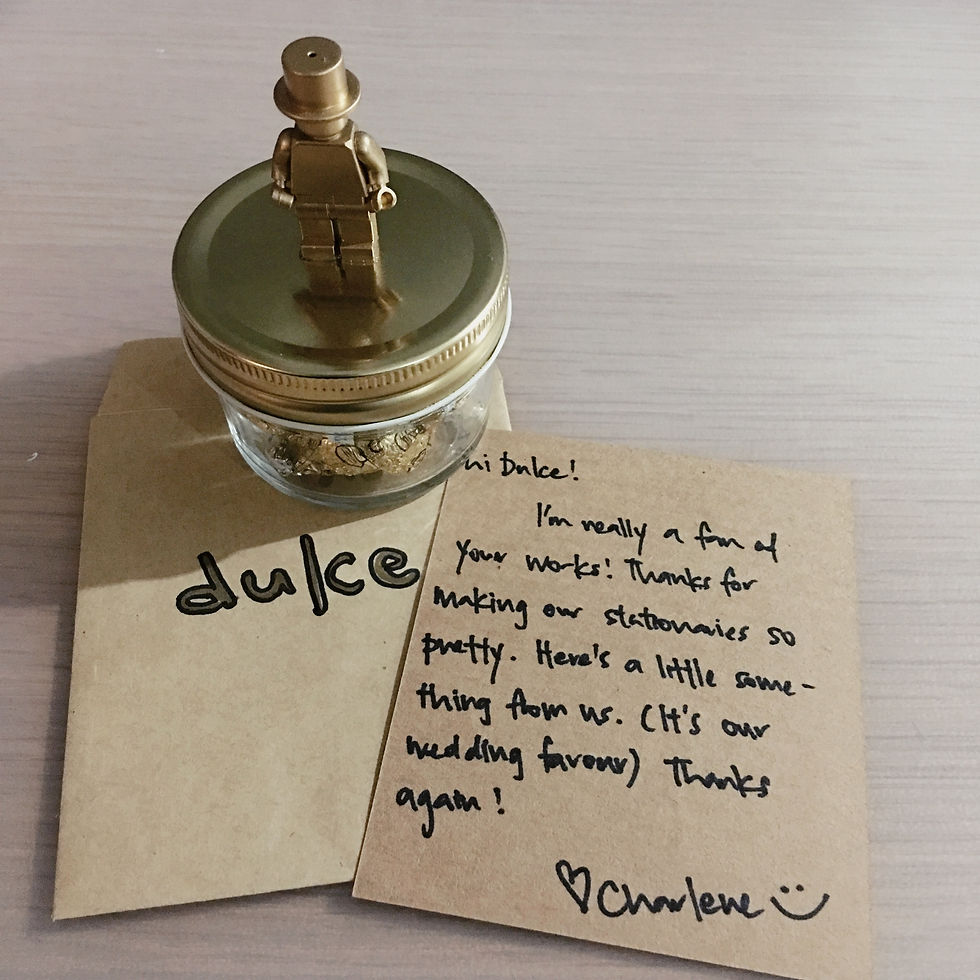 dulce
Hi Dulce!
I'm really a fan of
your works! Thanks for
making our stationaries so
pretty. Here's a little some-
thing from us. (It's our
wedding favour) Thanks
again!
♡ Charlene